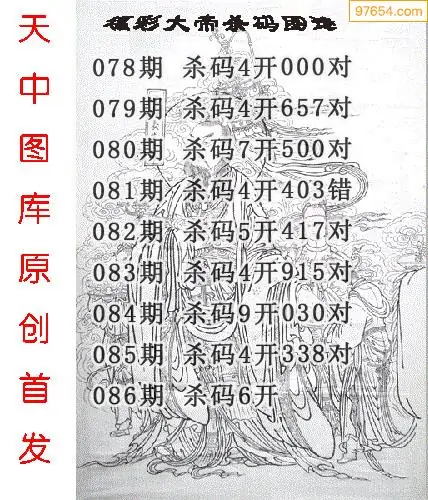 97654.com
福彩大帝杀码图迷
天中图库原创首发
078期 杀码4开000对
079期 杀码4开657对
080期 杀码7开500对
081期 杀码4开403错
082期 杀码5开417对
083期 杀码4开915对
084期 杀码9开030对
085期 杀码4开338对
086期 杀码6开